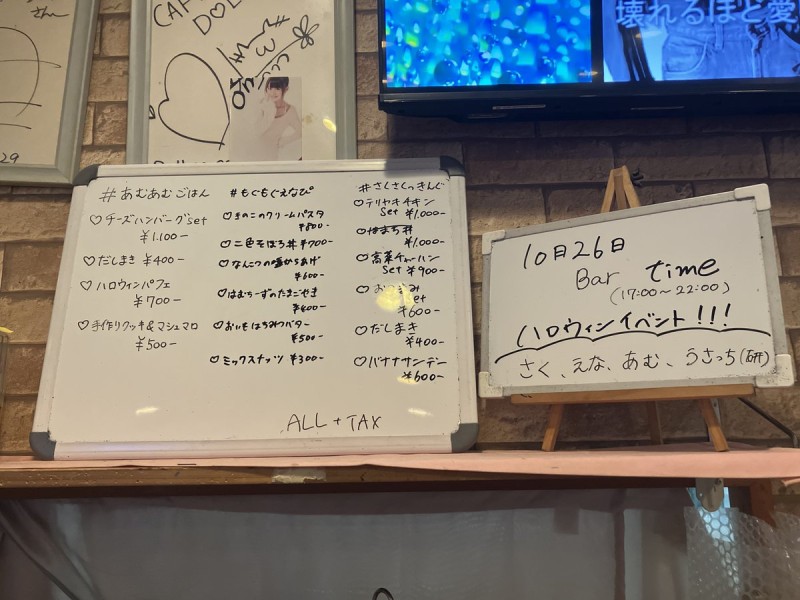 さん
29
CAF
DOL
壊れるほど愛
#あむあむごはん
♡チーズハンバーグset
¥1.100-
♡だしまき ¥400-
♡ハロウィンパフェ
¥700-
♡手作りクッキー&マシュマロ
¥500-
#もぐもぐえなぴ
♡きのこのクリームパスタ
¥800-
♡二色そぼろ丼 ¥700-
♡なんこつの唐からあげ
¥600-
♡はむちーずのたまごやき
¥400-
♡おいもはちみつバター
¥500-
♡ミックスナッツ ¥300-
#さくさくっきんぐ
♡テリヤキチキン
Set ¥1.000-
♡はまち丼
¥1.000-
♡高菜チャーハン
Set ¥900-
♡おつまみ
Set
¥600-
♡だしまき
¥400-
♡バナナサンデー
¥600-
ALL + TAX
10月26日
Bar time
(17:00~22:00)
ハロウィンイベント!!!
さく、えな、あむ、うさっち(研)